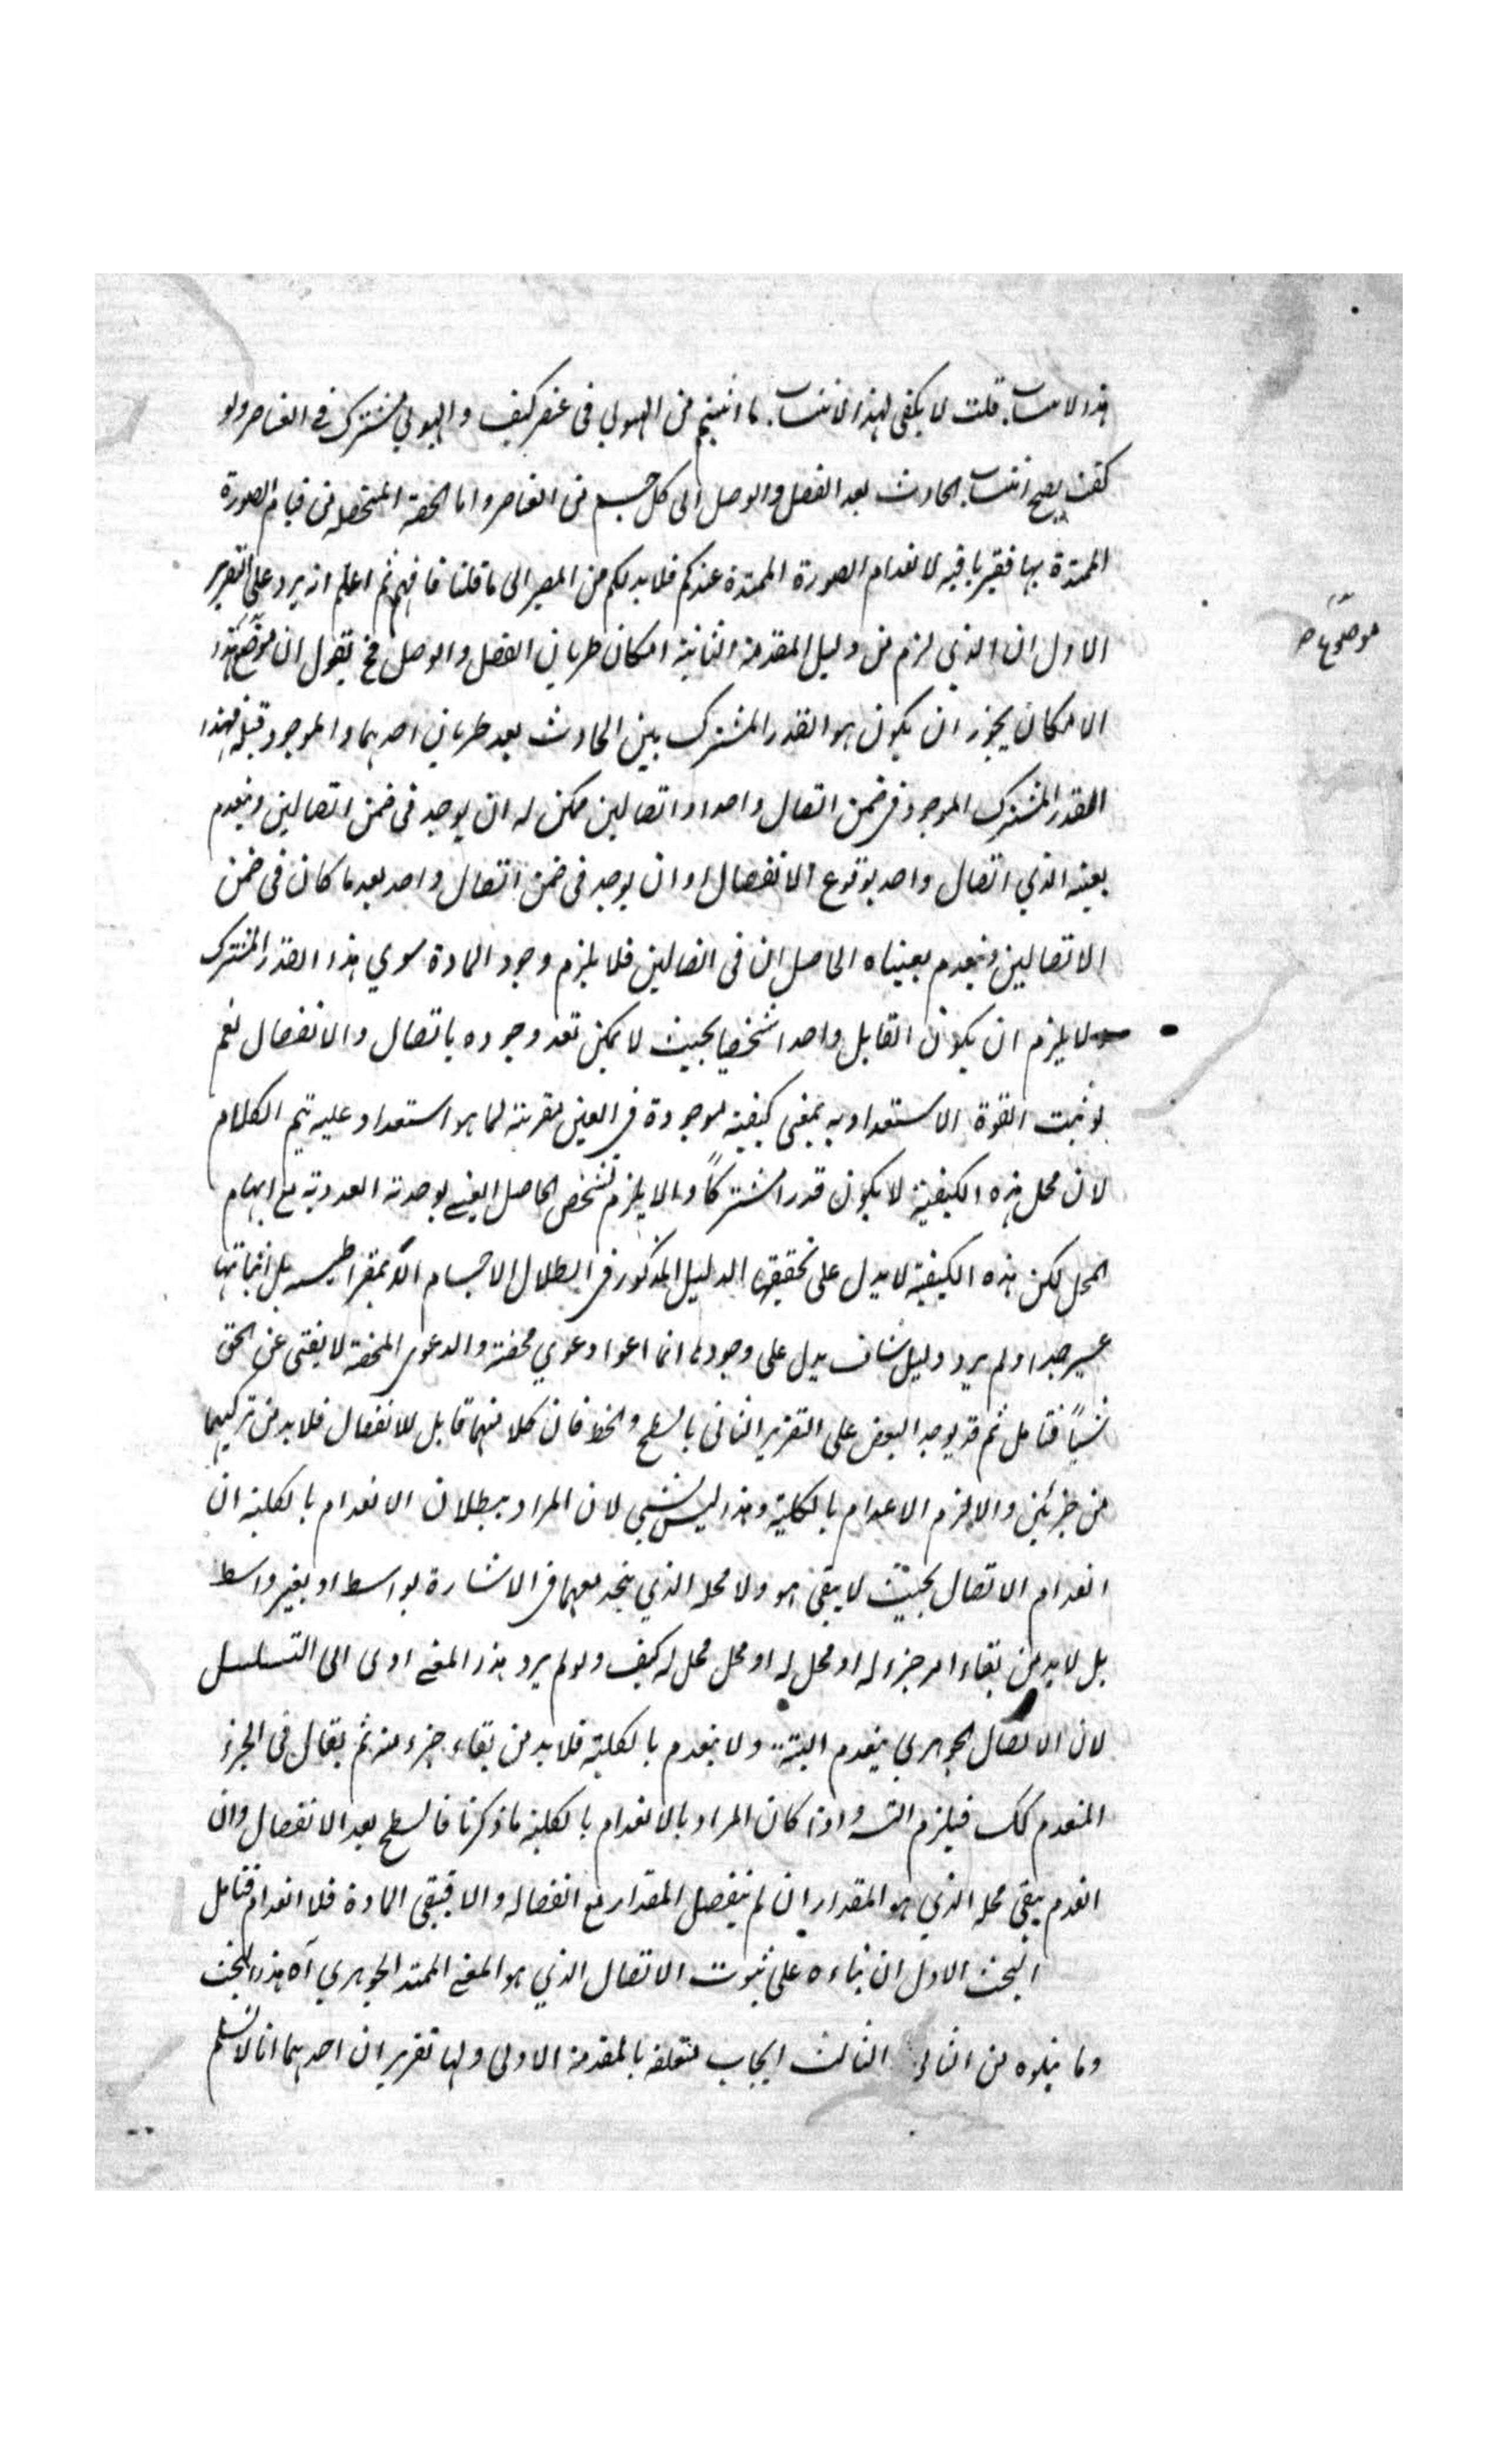 هذا الانتساب قلت لا يكفى لهذا الانتساب ما اثبتم من الهيولي فى عنصر كيف والهيولي مشترك فى العناصر ولو
كفت يصح انتساب الحادث بعد الفصل والوصل الى كل جسم من العناصر واما الحصة المتحصلة من قيام الصورة
الممتدة بها فغير باقية لانعدام الصورة الممتدة عندكم فلابد لكم من المصير الى ما قلنا فافهم ثم اعلم انه يرد على التقرير
الاول ان الذي لزم من دليل المقدمة الثانية امكان طريان الفصل والوصل فح يقول ان موضع هذا
موضوع ص
الامكان يجوز ان يكون هو القدر المشترك بين الحادث بعد طريان احدهما والموجود قبله فهذا
القدر المشترك الموجود فى ضمن اتصال واحد او اتصالين ممكن له ان يوجد فى ضمن اتصالين وينعدم
بعينه الذي اتصال واحد بوقوع الانفصال او ان يوجد فى ضمن اتصال واحد بعد ما كان فى ضمن
الاتصالين وينعدم بعيناه الحاصل ان فى اتصالين فلا يلزم وجود المادة سوي هذا القدر المشترك
لا يلزم ان يكون القابل واحدا شخصيا بحيث لا يمكن تعدد وجوده باتصال والانفصال نعم
لو ثبت القوة الاستعدادية بمعنى كيفية موجودة فى العين مقربة لما هو استعداد عليه تيم الكلام
لان محل هذه الكيفية لا يكون قدرا مشتركاً والا يلزم تشخص الحاصل اليفى بوحدته العددية مع ابهام
المحل لكن هذه الكيفية لا يدل على تحقيقها الدليل المذكور فى ابطال الاجسام الديمقراطيسيه بل اثباتها
عسير جدا ولم يرد دليل شاف يدل على وجودها انما ادعوا دعوي محضة والدعوى المحضة لا يغنى عن الحق
شيئاً فتامل ثم قد يوجد البعض على التقرير الثانى بالسطح والخط فان كلا منهما قابل للانفصال فلابد من تركيبهما
من جزئين والا لزم الاعدام بالكلية وهذا ليس بشيى لان المراد ببطلان الانعدام بالكلية ان
انعدام الاتصال بحيث لا يبقى هو ولا محله الذي يتحد معهما فى الاشارة بواسط او بغير واسط
بل لابد من بقاء امر جزء له او محل له او محل محل له كيف ولو لم يرد هذا المعنى ادى الى التسلسل
لان الاتصال الجوهري ينعدم البتة ولا ينعدم بالكلية فلابد من بقاء جزء منه ثم يقال فى الجزء
المنعدم كك فيلزم التـ واذا كان المراد بالانعدام بالكلية ما ذكرنا فالسطح بعد الانفصال وان
انعدم يبقى محله الذي هو المقدار ان لم ينفصل المقدار مع انفصاله والا فيبقى المادة فلا انعدام فتامل
البحث الاول ان بناءه على ثبوت الاتصال الذي هو المعنى الممتد الجوهري آه هذا البحث
وما يتلوه من الثانى الثالث ايجاب متعلقة بالمقدمة الاولى ولها تقرير ان احدهما انا لا نسلم